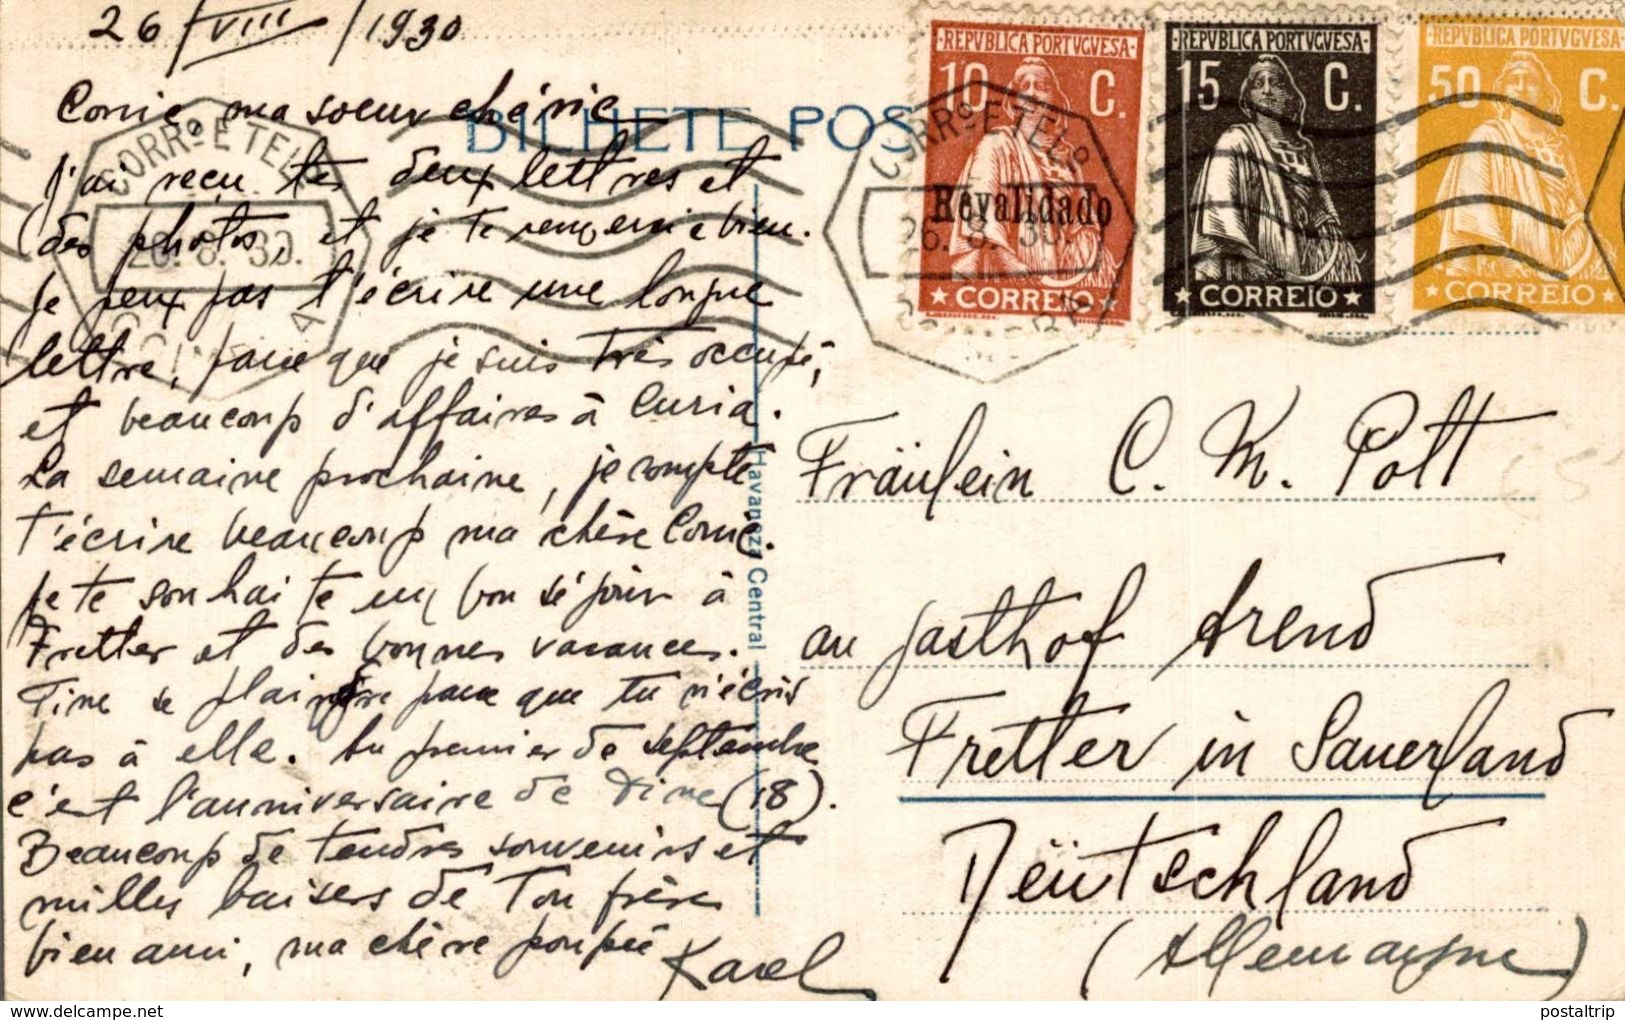 26/VIII/1930
Corrie ma soeur chérie
BILHETE POS
J'ai reçu tes deux lettres et
des photos, et je te remercie bien.
Je peux pas t'écrire une longue
lettre, parce que je suis très occupé,
et beaucoup d'affaires à Curia.
La semaine prochaine, je compte
t'écrire beaucoup ma chère Corrie.
Je te souhaite un bon séjour à
Fretter et des bonnes vacances.
Tine se plaindre parce que tu n'écris
pas à elle. Au premier de septembre
c'est l'anniversaire de Tine (18).
Beaucoup de tendres souvenirs et
milles baisers de Ton frère
bien ami, ma chère poupée
Karel
Havaneza Central
REPVBLICA PORTVGVESA
10 C.
Revalidado
CORREIO
REPVBLICA PORTVGVESA
15 C.
CORREIO
REPVBLICA PORTVGVESA
50 C.
CORREIO
CORRº E TELº
26. 8. 30.
CORRº E TEL
26. 8. 30.
4
Fräulein C. M. Pott
au Gasthof Arend
Fretter in Sauerland
Deutschland
(Allemagne)
delcampe.net
postaltrip